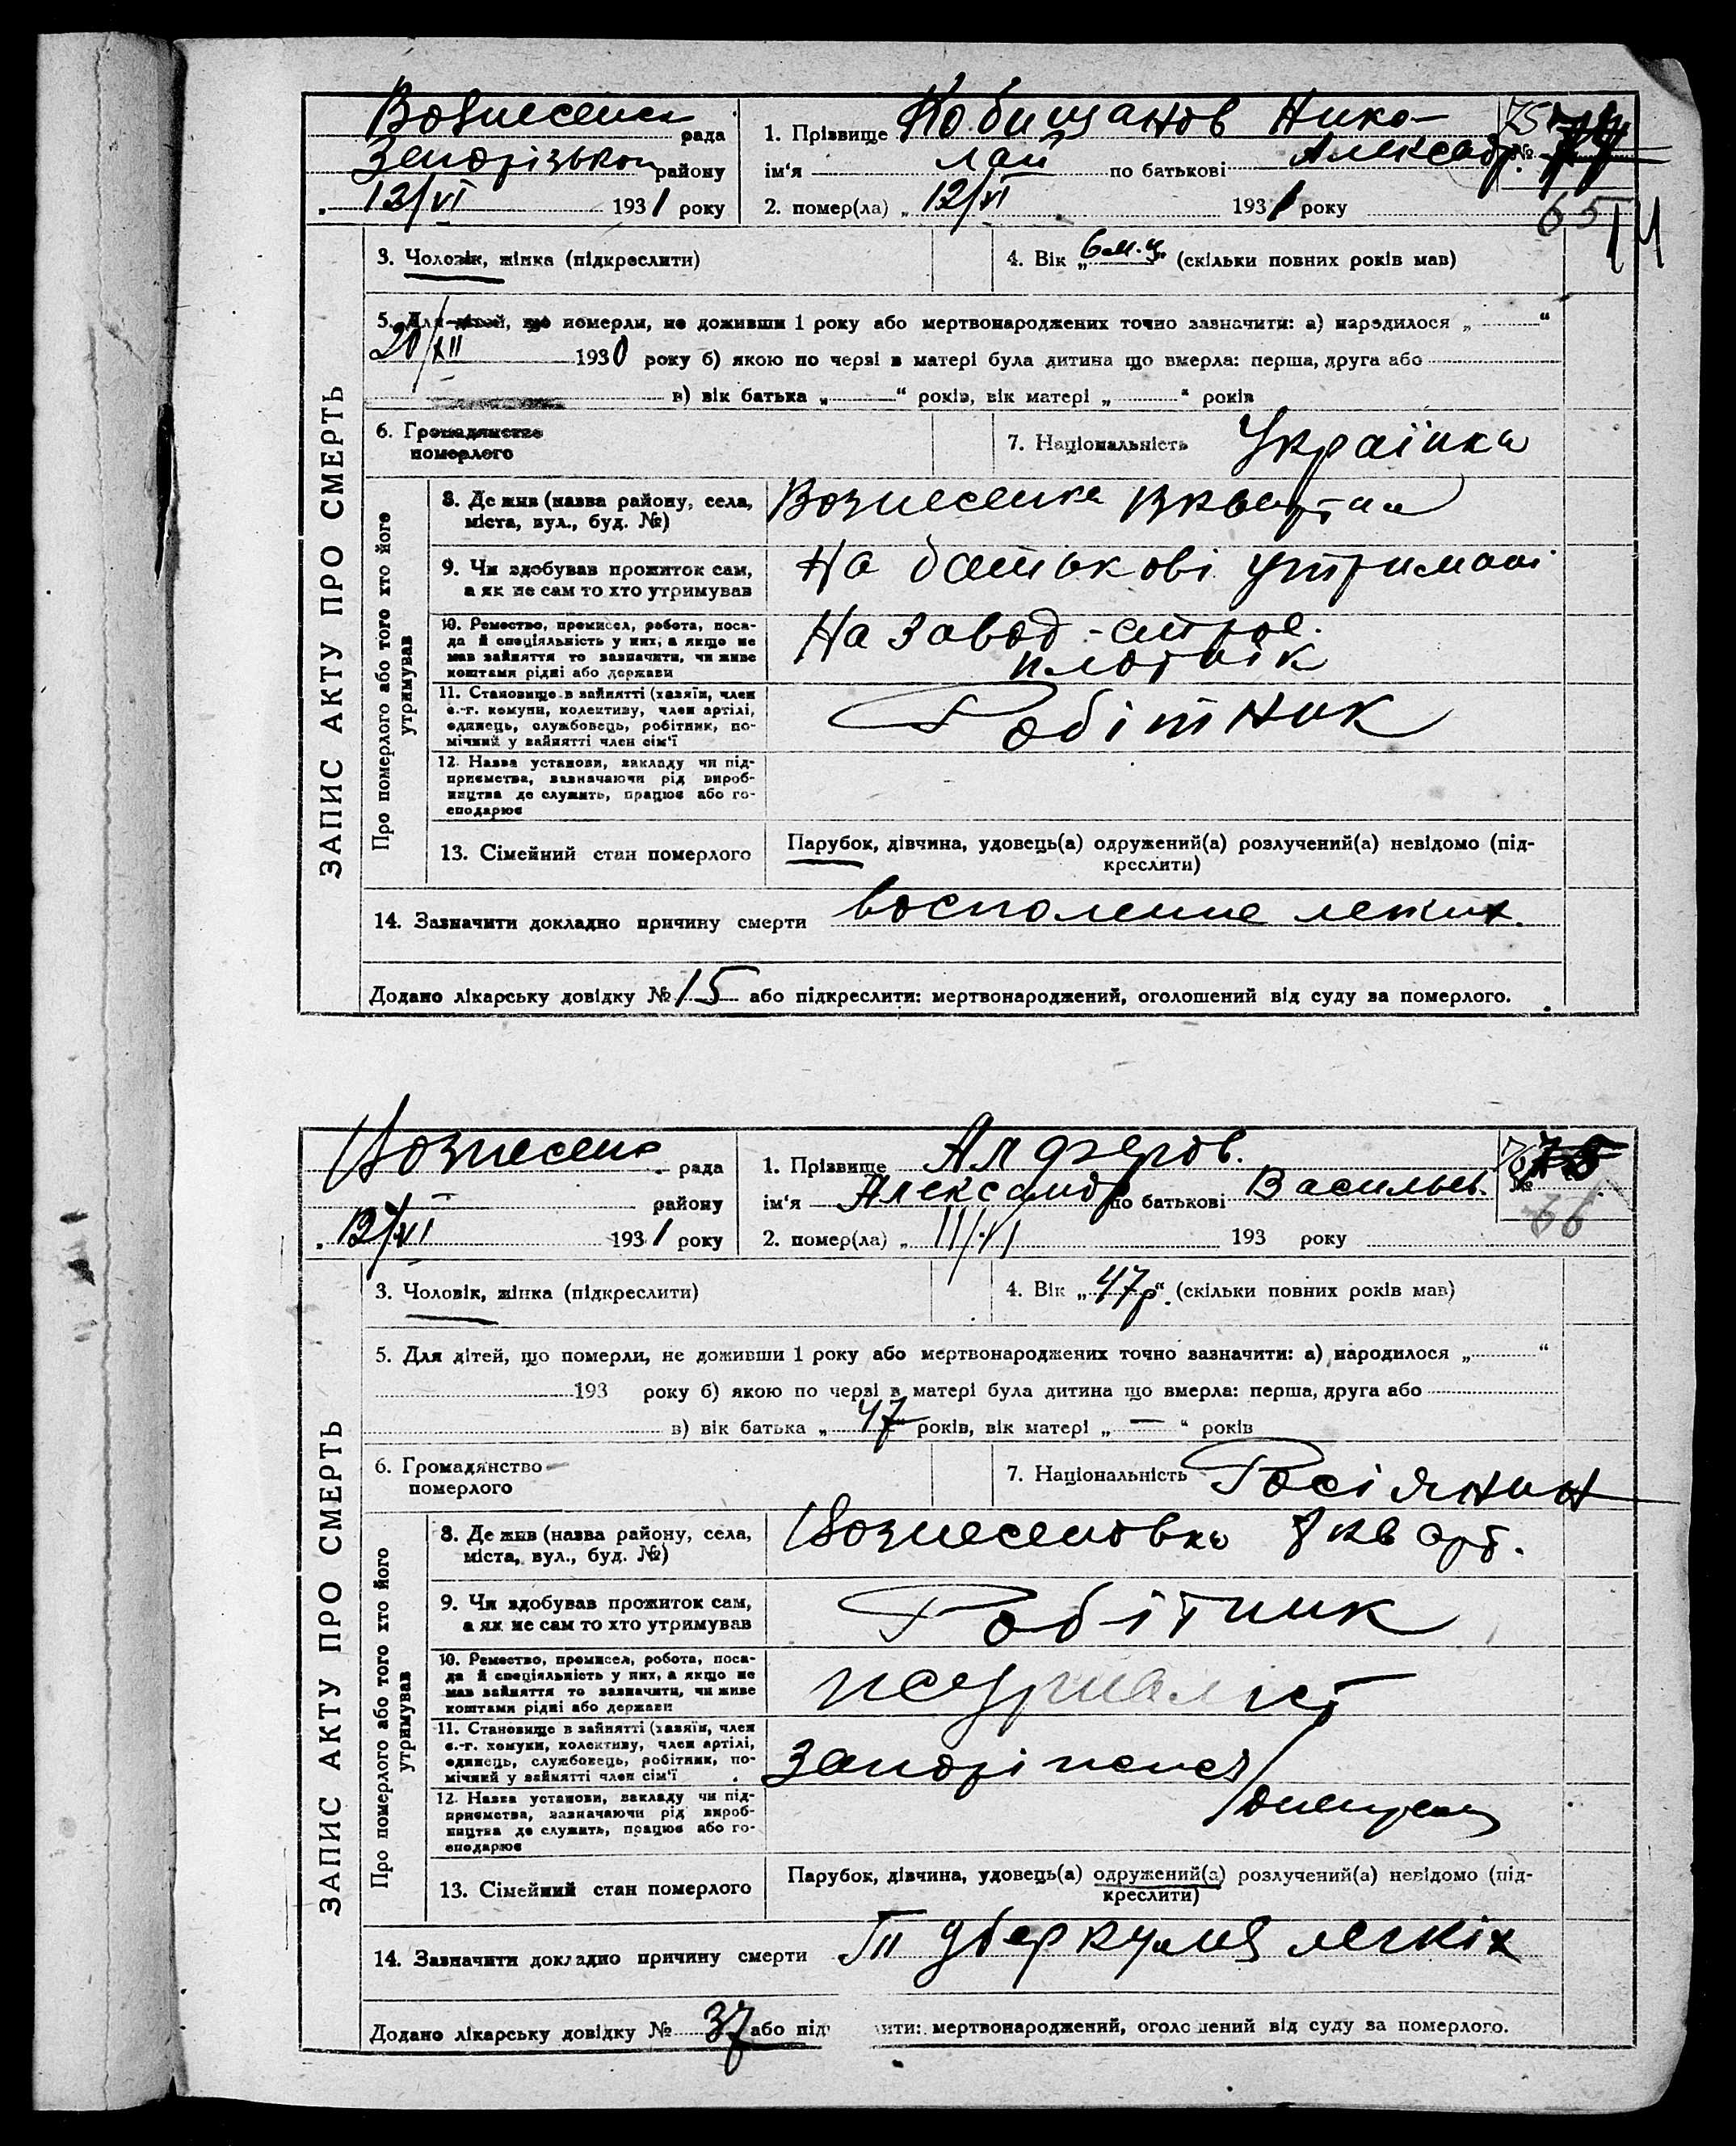 ЗАПИС АКТУ ПРО СМЕРТЬ
Вознесенк рада
Запорізьком району
12/VI 1931 року
1. Прізвище Кобищанов Нико-
ім'я лай по батькові Александр.
№ 75
65
2. помер(ла) „ 12/VI 1931 року
14
3. Чоловік, жінка (підкреслити)
4. Вік „6 м-ц“ (скільки повних років мав)
5. Для дітей, що померли, не доживши 1 року або мертвонароджених точно зазначити: а) народилося „ “
20/XII 1930 року б) якою по черзі в матері була дитина що вмерла: перша, друга або
в) вік батька „ “ років, вік матері „ “ років
6. Громадянство
померлого
7. Національність Українка
Про померлого або того хто його
утримував
8. Де жив (назва району, села,
міста, вул., буд. №)
Вознесенка
9. Чи здобував прожиток сам,
а як не сам то хто утримував
На батькові утримані
10. Ремество, промисел, робота, поса-
да й спеціяльність у них, а якщо не
мав зайняття то зазначити, чи живе
коштами рідні або держави
На завод-строе.
плотнік
11. Становище в зайнятті (хазяїн, член
с.-г. комуни, колективу, член артілі,
одинець, службовець, робітник, по-
мічний у зайнятті член сім'ї
Робітник
12. Назва установи, закладу чи під-
приємства, зазначаючи рід вироб-
ництва де служить, працює або го-
сподарює
13. Сімейний стан померлого
Парубок, дівчина, удовець(а) одружений(а) розлучений(а) невідомо (під-
креслити)
14. Зазначити докладно причину смерти воспаление легких.
Додано лікарську довідку № 15 або підкреслити: мертвонароджений, оголошений від суду за померлого.
ЗАПИС АКТУ ПРО СМЕРТЬ
Вознесенк рада
району
12/VI 1931 року
1. Прізвище Алферов.
ім'я Александр по батькові Васильев.
№ 76
66
2. помер(ла) „ 11/VI 193 року
3. Чоловік, жінка (підкреслити)
4. Вік „47р“. (скільки повних років мав)
5. Для дітей, що померли, не доживши 1 року або мертвонароджених точно зазначити: а) народилося „ “
193 року б) якою по черзі в матері була дитина що вмерла: перша, друга або
в) вік батька „ 47 років, вік матері „ — “ років
6. Громадянство —
померлого
7. Національність Росіянин
Про померлого або того хто його
утримував
8. Де жив (назва району, села,
міста, вул., буд. №)
Вознесеновка
9. Чи здобував прожиток сам,
а як не сам то хто утримував
Робітник
10. Ремество, промисел, робота, поса-
да й спеціяльність у них, а якщо не
мав зайняття то зазначити, чи живе
коштами рідні або держави
11. Становище в зайнятті (хазяїн, член
с.-г. комуни, колективу, член артілі,
одинець, службовець, робітник, по-
мічний у зайнятті член сім'ї
12. Назва установи, закладу чи під-
приємства, зазначаючи рід вироб-
ництва де служить, працює або го-
сподарює
13. Сімейний стан померлого
Парубок, дівчина, удовець(а) одружений(а) розлучений(а) невідомо (під-
креслити)
14. Зазначити докладно причину смерти Туберкульоз легкіх
Додано лікарську довідку № 37 або під ити: мертвонароджений, оголо ений від суду за померлого.